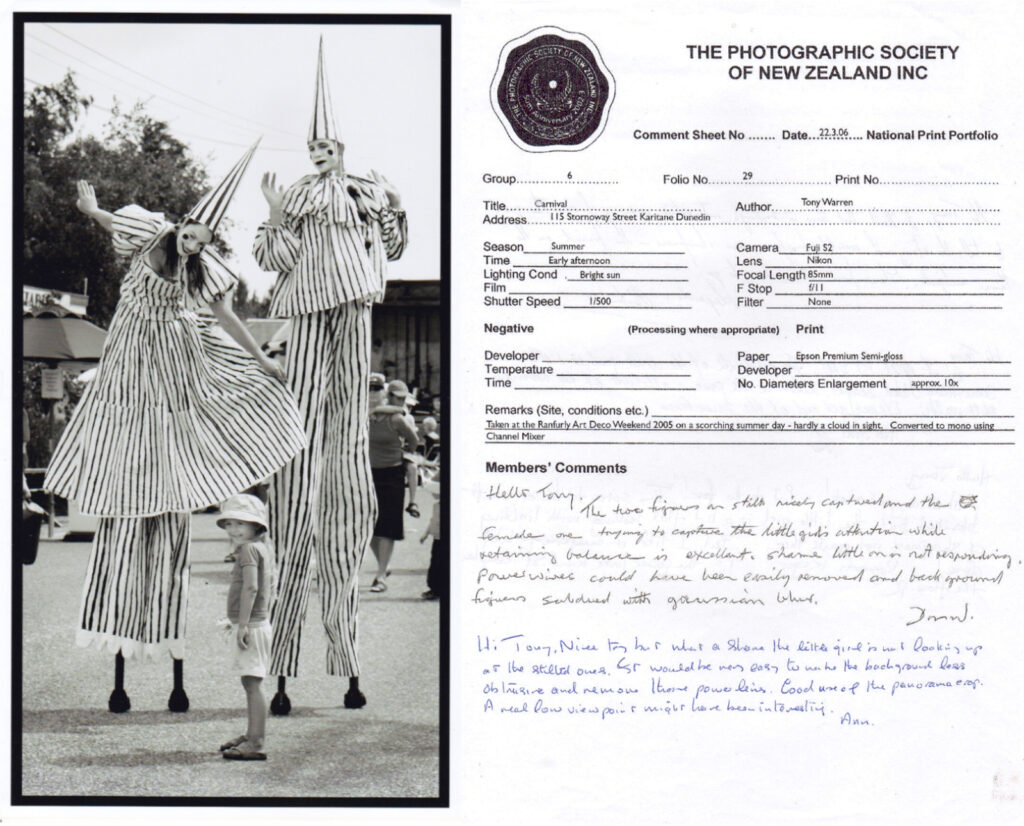 THE PHOTOGRAPHIC SOCIETY OF NEW ZEALAND INC
50th Anniversary
THE PHOTOGRAPHIC SOCIETY
OF NEW ZEALAND INC
Comment Sheet No ....... Date...22.3.06... National Print Portfolio
Group 6 Folio No. 29 Print No.
Title Carnival Author Tony Warren
Address 115 Stornoway Street Karitane Dunedin
Season Summer Camera Fuji S2
Time Early afternoon Lens Nikon
Lighting Cond. Bright sun Focal Length 85mm
Film F Stop f/11
Shutter Speed 1/500 Filter None
Negative (Processing where appropriate) Print
Developer Paper Epson Premium Semi-gloss
Temperature Developer
Time No. Diameters Enlargement approx. 10x
Remarks (Site, conditions etc.)
Taken at the Ranfurly Art Deco Weekend 2005 on a scorching summer day - hardly a cloud in sight. Converted to mono using
Channel Mixer
Members' Comments
Hello Tony.
The two figures on stilts nicely captured and the
female one trying to capture the little girls attention while
retaining balance is excellent. Shame little one is not responding.
Powerwires could have been easily removed and background
figures subdued with gaussian blur.
Hi Tony, Nice try but what a shame the little girl is not looking up
at the stilted ones. It would be very easy to make the background less
obtrusive and remove those power lines. Good use of the panorama crop.
A real low viewpoint might have been interesting.
Ann.